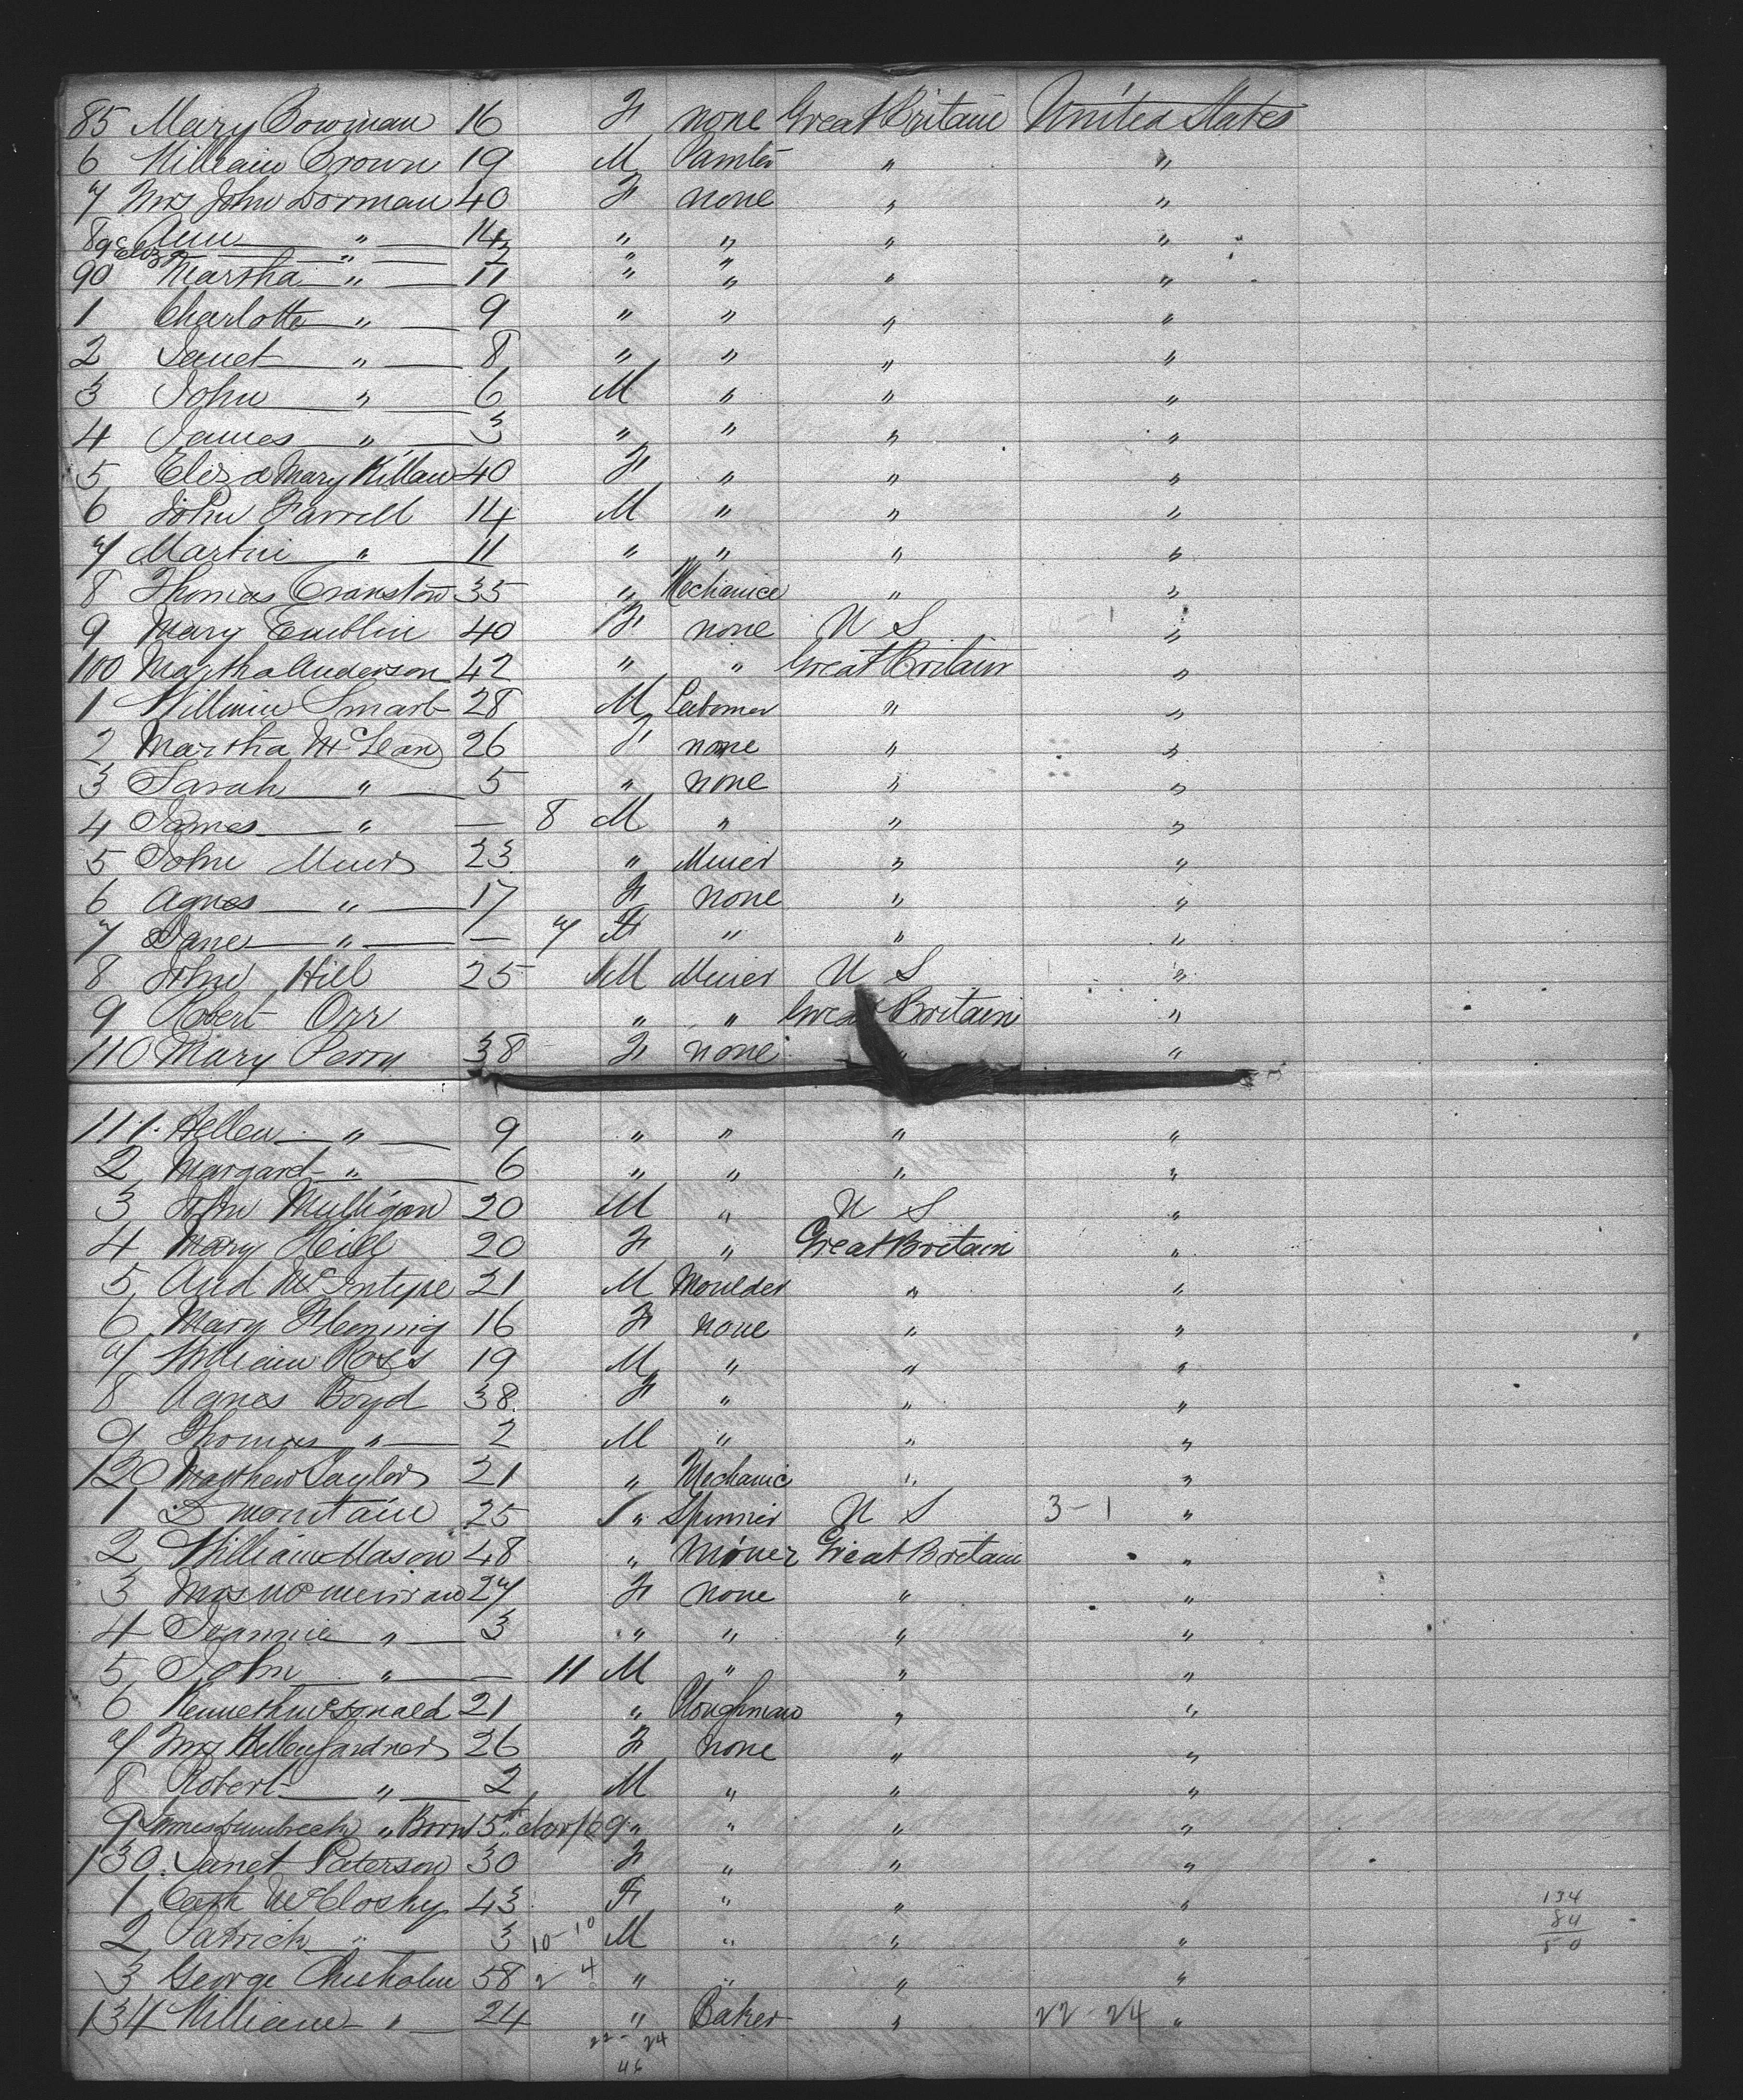 85 Mary Bowman 16 F none Great Britain United States
6 William Brown 19 M Painter " "
7 Mrs John Dorman 40 F none " "
8 Ann " 14 " " " "
89 Eliz " 2 " "
90 Martha " 11 " " " "
1 Charlotte " 9 " " " "
2 Janet " 8 " " " "
3 John " 6 M " " "
4 James " 3 " " " "
5 Eliza Mary Killan 40 F " " "
6 John Farrell 14 M " " "
7 Martin " 11 " " " "
8 Thomas Cranston 35 " Mechanic " "
9 Mary Emblin 40 F none U S "
100 Martha Anderson 42 " " Great Britain "
1 William Smart 28 M Labomer " "
2 Martha McLean 26 F none " "
3 Sarah " 5 " none " "
4 James " — 8 M " " "
5 John Muir 23 " Miner " "
6 Agnes " 17 F none " "
7 Jane " — 7 F " " "
8 John Hill 25 M Miner U S "
9 Robert Orr " " Great Britain "
110 Mary Perry 38 F none " "
111 Hellen " 9 " " " "
2 Margard " 6 " " " "
3 John Mulligan 20 M " U S "
4 Mary Neill 20 F " Great Britain "
5 And McIntyre 21 M Moulder " "
6 Mary Fleming 16 F none " "
7 William Ross 19 M " " "
8 Agnes Boyd 38 F " " "
9 Thomas " 2 M " " "
120 Matthew Taylor 21 " Mechanic " "
1 D Mountain 25 1 " Spinner U S 3-1 "
2 William Mason 48 " Miner Great Britain "
3 Mrs 27 F none " "
4 Jeannie " 3 " " " "
5 John " — 11 M " " "
6 Kenneth McDonald 21 " Ploughman " "
7 Mrs Hellen Gardner 26 F none " "
8 Robert " 2 M " " "
9 James Dunbreck " Born 15th Nov/69 " " " "
130 Janet Paterson 30 F " " "
1 Cath McClosky 43 F " " "
134
2 Patrick " 3 10-10 M " " "
84
50
3 George Chisholm 58 2 4 " " " "
134 William " 24 " Baker " 22-24 "
22-24
46